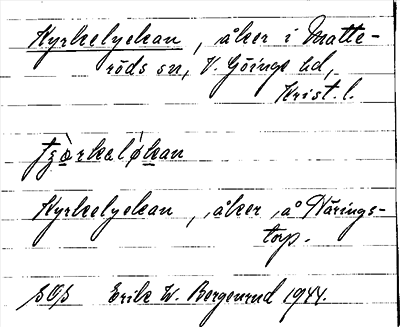 Kyrkelyekan, åker i Matte-
röds sn, V. Göinge hd,
Krist. l.
tʒàrkəlǿkan
Kyrkelyekan, åker å Näringstorp-
torp.
SOS Erik W. Bergenrud 1944.